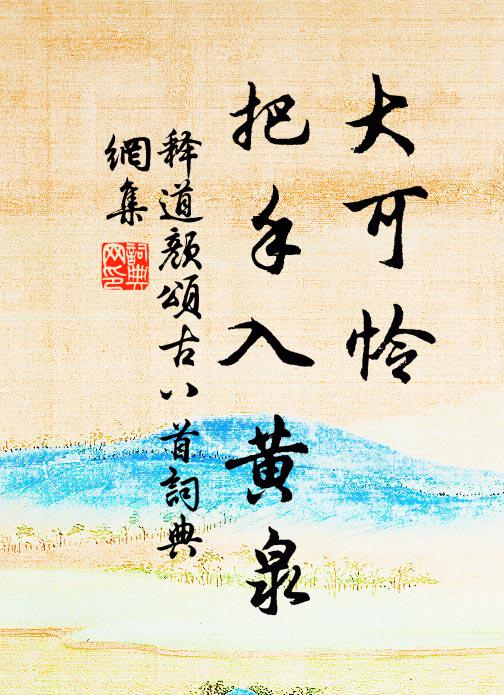 大可怜
把手入黄泉
释道颜頌古八首詞典
網集
詞典
网印